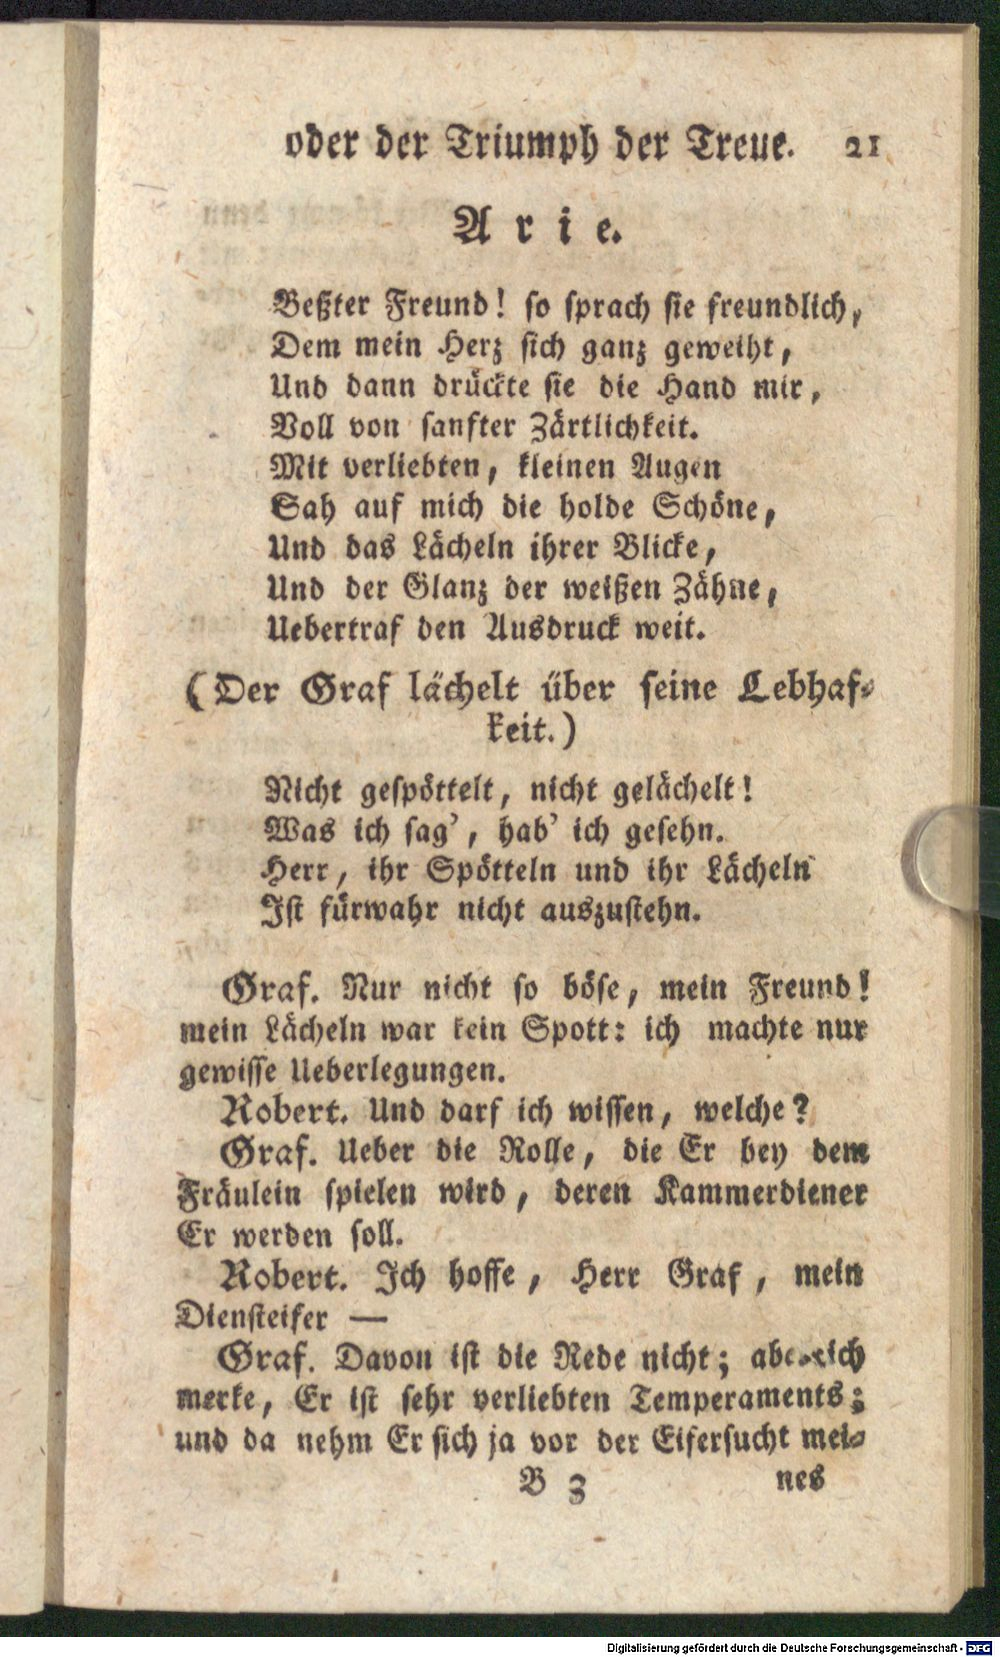 oder der Triumph der Treue. 21
Arie.
Beßter Freund! so sprach sie freundlich,
Dem mein Herz sich ganz geweiht,
Und dann drückte sie die Hand mir,
Voll von sanfter Zärtlichkeit.
Mit verliebten, kleinen Augen
Sah auf mich die holde Schöne,
Und das Lächeln ihrer Blicke,
Und der Glanz der weißen Zähne,
Uebertraf den Ausdruck weit.
(Der Graf lächelt über seine Lebhaf-
keit.)
Nicht gespöttelt, nicht gelächelt!
Was ich sag', hab' ich gesehn.
Herr, ihr Spötteln und ihr Lächeln
Ist fürwahr nicht auszustehn.
Graf. Nur nicht so böse, mein Freund!
mein Lächeln war kein Spott: ich machte nur
gewisse Ueberlegungen.
Robert. Und darf ich wissen, welche?
Graf. Ueber die Rolle, die Er bey dem
Fräulein spielen wird, deren Kammerdiener
Er werden soll.
Robert. Ich hoffe, Herr Graf, mein
Diensteifer —
Graf. Davon ist die Rede nicht; aber ich
merke, Er ist sehr verliebten Temperaments;
und da nehm Er sich ja vor der Eifersucht mei-
B 3 nes
Digitalisierung gefördert durch die Deutsche Forschungsgemeinschaft - DFG